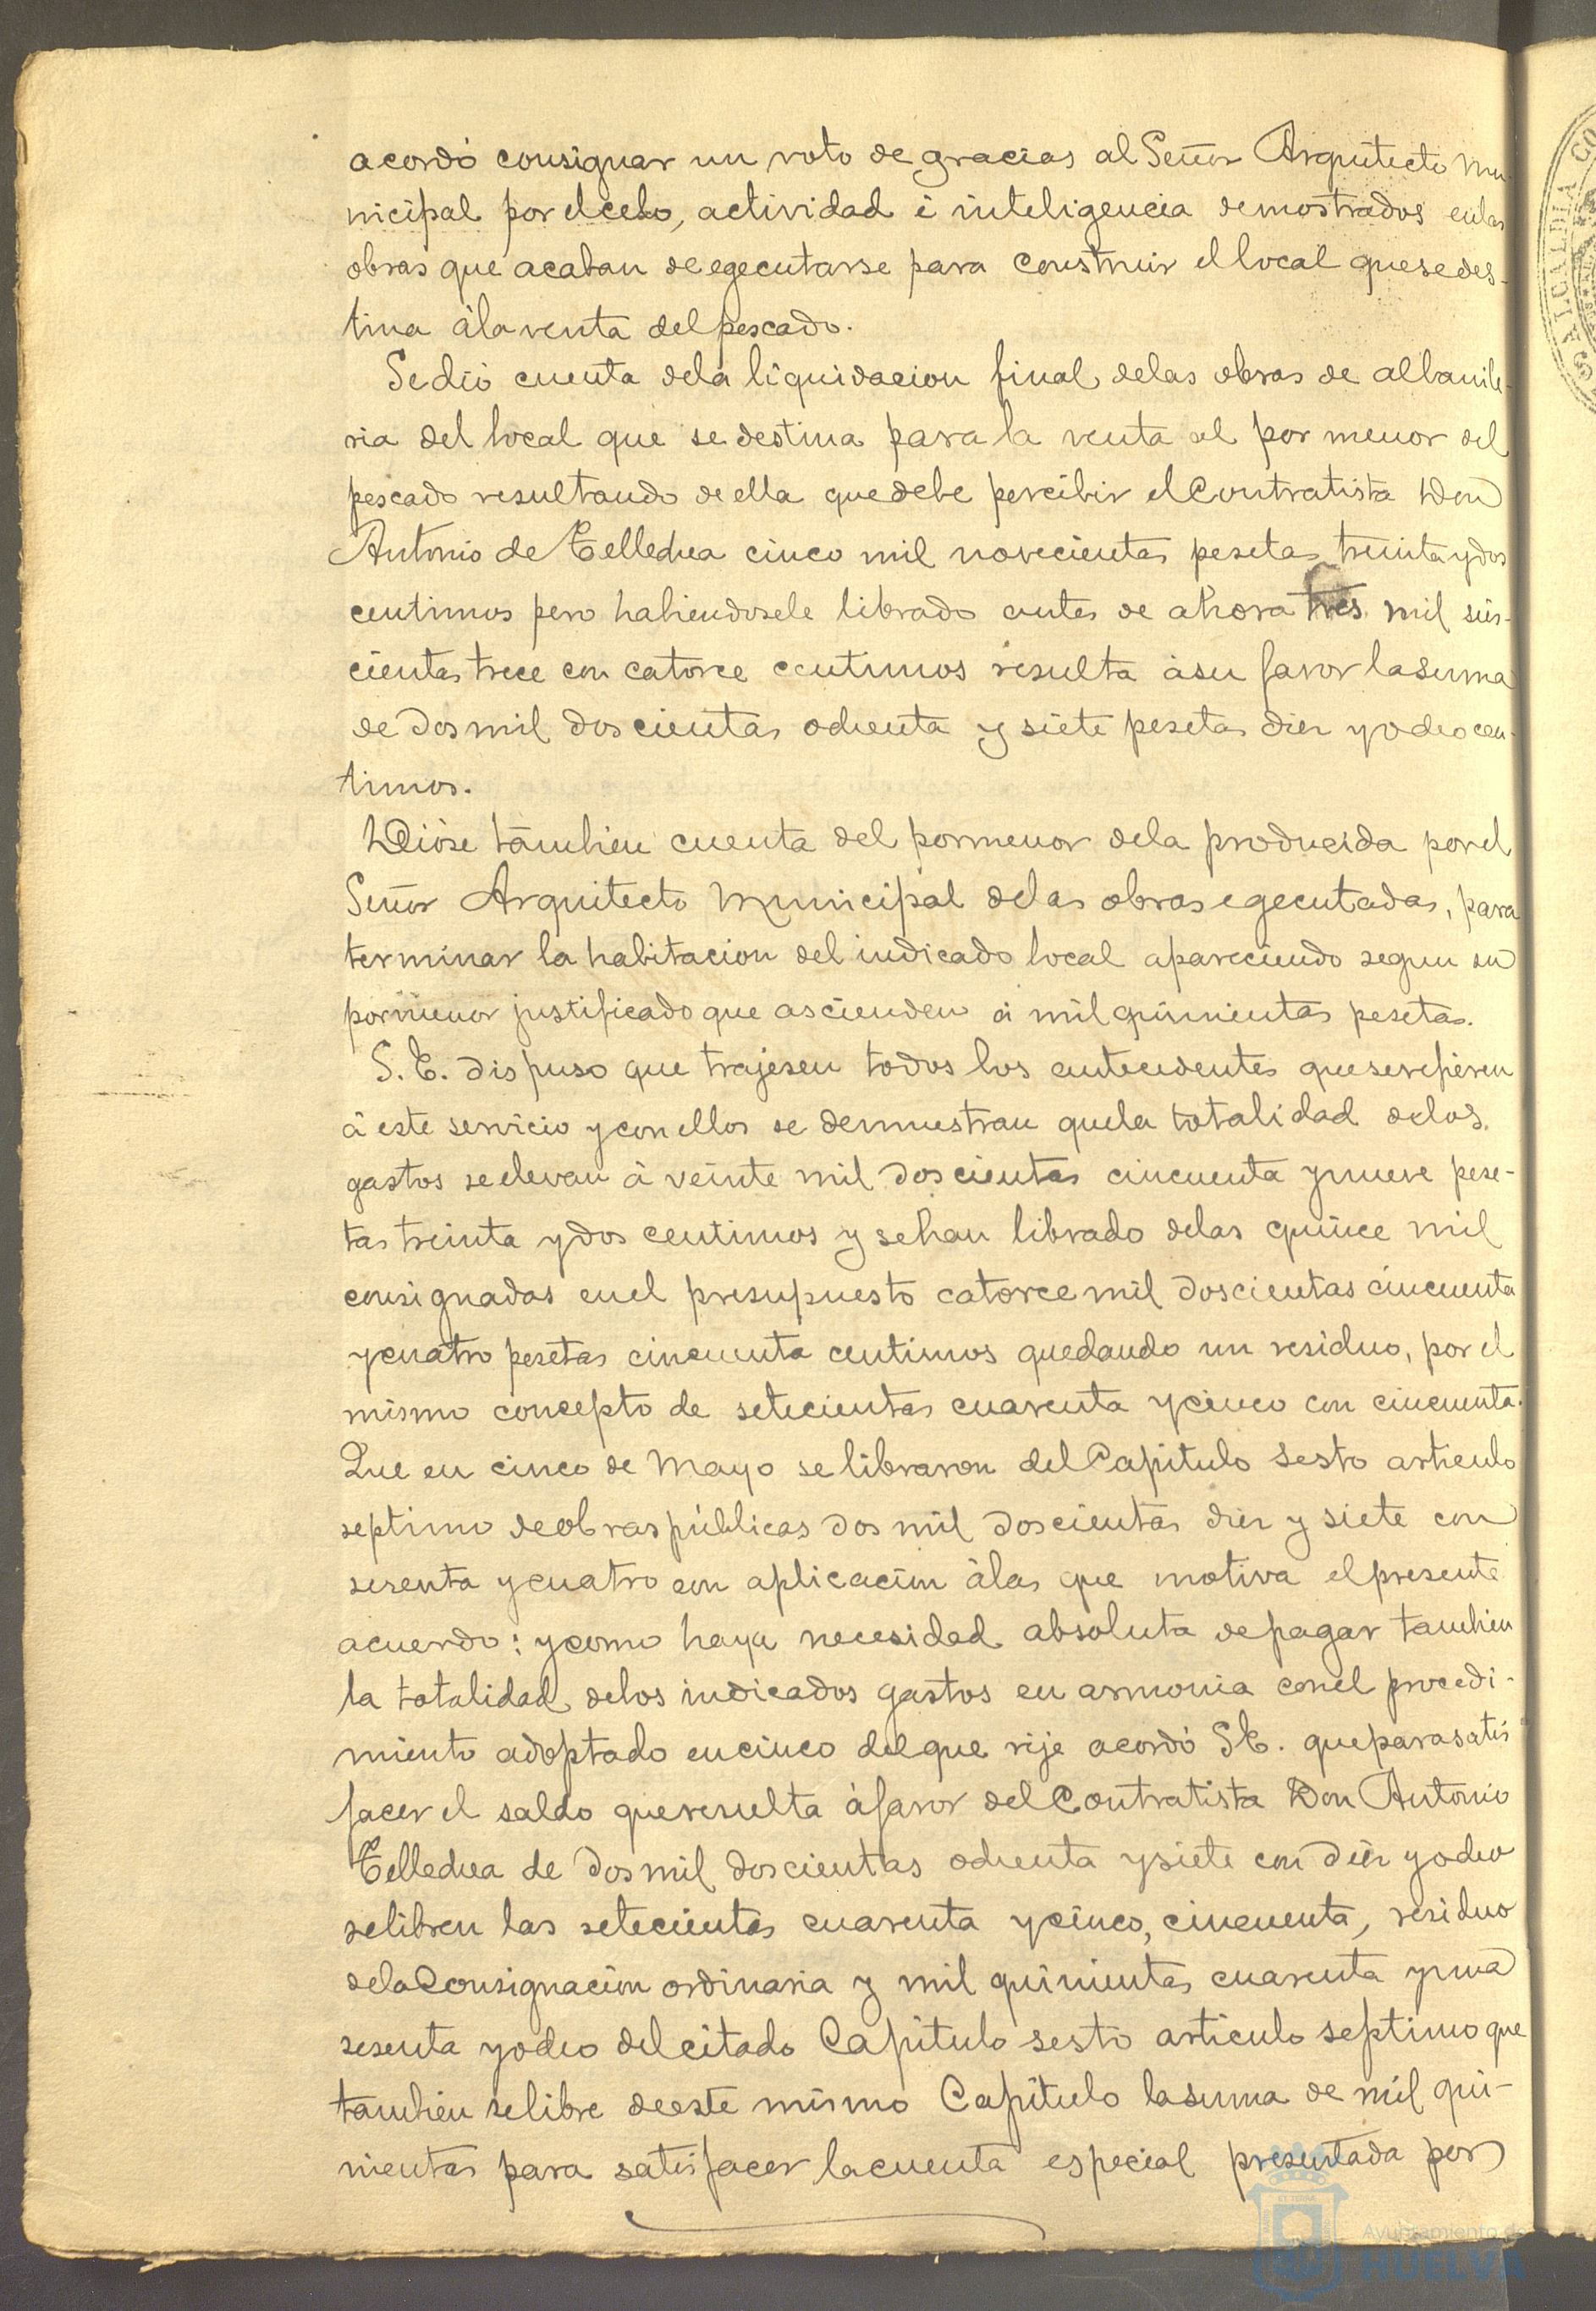 acordó consignar un voto de gracias al Señor Arquitecto Mu-
nicipal por el celo, actividad é inteligencia demostrados en las
obras que acaban de egecutarse para construir el local que se des-
tina á la venta del pescado.
Se dió cuenta de la liquidacion final de las obras de albañile-
ria del local que se destina para la venta al por menor del
pescado resultando de ella que debe percibir el Contratista Don
Antonio de Tellechea cinco mil novecientas pesetas treinta y dos
centimos pero habiendosele librado antes de ahora tres mil seis-
cientas trece con catorce centimos resulta á su favor la suma
de dos mil doscientas ochenta y siete pesetas diez y ocho cen-
timos.
Dióse tambien cuenta del pormenor de la producida por el
Señor Arquitecto Municipal de las obras egecutadas, para
terminar la habitacion del indicado local apareciendo segun su
pormenor justificado que ascienden á mil quinientas pesetas.
S. E. dispuso que trajesen todos los antecedentes que se refieren
á este servicio y con ellos se demuestran que la totalidad de los
gastos se elevan á veinte mil doscientas cincuenta y nueve pese-
tas treinta y dos centimos y se han librado de las quince mil
consignadas en el presupuesto catorce mil doscientas cincuenta
y cuatro pesetas cincuenta centimos quedando un residuo, por el
mismo concepto de setecientas cuarenta y cinco con cincuenta.
Que en cinco de Mayo se libraron del Capitulo Sesto articulo
septimo de obras públicas dos mil doscientas diez y siete con
sesenta y cuatro con aplicacion á las que motiva el presente
acuerdo: y como haya necesidad absoluta de pagar tambien
la totalidad de los indicados gastos en armonia con el procedi-
miento adoptado en cinco del que rije acordó S.E. que para satis
facer el saldo que resulta á favor del Contratista Don Antonio
Tellechea de dos mil doscientas ochenta y siete con diez y ocho
se libren las setecientas cuarenta y cinco, cincuenta, residuo
de la Consignacion ordinaria y mil quinientas cuarenta y una
sesenta y ocho del citado Capitulo sesto articulo septimo que
tambien se libre de este mismo Capitulo la suma de mil qui-
nientas para satisfacer la cuenta especial presentada por
Ayuntamiento de
HUELVA